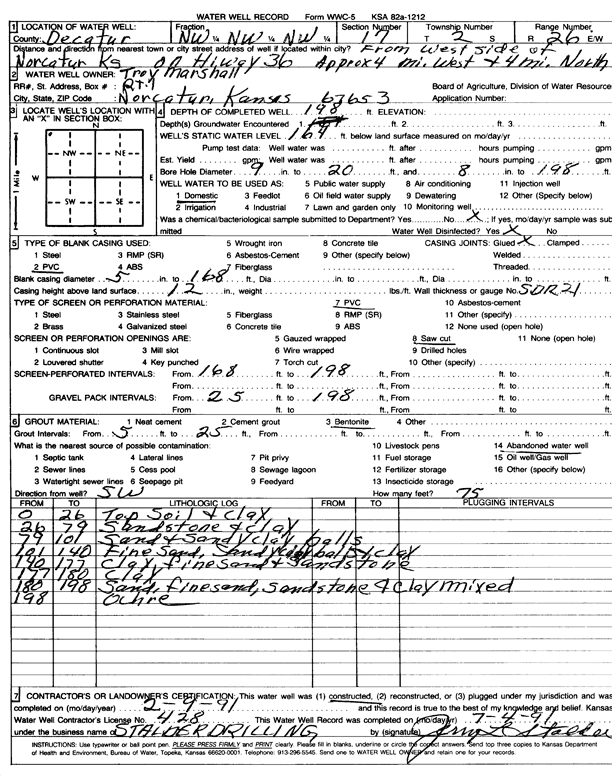 WATER WELL RECORD Form WWC-5 KSA 82a-1212
1 LOCATION OF WATER WELL: Fraction Section Number Township Number Range Number
County: Decatur NW ¼ NW ¼ NW ¼ 17 T 2 S R 26 E/W
Distance and direction from nearest town or city street address of well if located within city? From West side of
Norcatur Ks on Hiway 36 Approx 4 mi. West & 4 mi. North
2 WATER WELL OWNER: Troy Marshall
RR#, St. Address, Box # : RT.1 Board of Agriculture, Division of Water Resource
City, State, ZIP Code : Norcatur, Kansas 67653 Application Number:
3 LOCATE WELL'S LOCATION WITH AN "X" IN SECTION BOX:
N
NW NE
W E
SW SE
S
1 Mile
4 DEPTH OF COMPLETED WELL. 198 ft. ELEVATION:
Depth(s) Groundwater Encountered 1. ft. 2. ft. 3. ft.
WELL'S STATIC WATER LEVEL 164 ft. below land surface measured on mo/day/yr
Pump test data: Well water was ft. after hours pumping gpm
Est. Yield gpm: Well water was ft. after hours pumping gpm
Bore Hole Diameter. 9 in. to 20 ft., and 8 in. to 198 ft.
WELL WATER TO BE USED AS: 5 Public water supply 8 Air conditioning 11 Injection well
1 Domestic 3 Feedlot 6 Oil field water supply 9 Dewatering 12 Other (Specify below)
2 Irrigation 4 Industrial 7 Lawn and garden only 10 Monitoring well
Was a chemical/bacteriological sample submitted to Department? Yes No X ; If yes, mo/day/yr sample was sub
mitted Water Well Disinfected? Yes X No
5 TYPE OF BLANK CASING USED: 5 Wrought iron 8 Concrete tile CASING JOINTS: Glued X Clamped
1 Steel 3 RMP (SR) 6 Asbestos-Cement 9 Other (specify below) Welded
2 PVC 4 ABS 7 Fiberglass Threaded.
Blank casing diameter 5 in. to 168 ft., Dia in. to ft., Dia in. to ft.
Casing height above land surface 12 in., weight lbs./ft. Wall thickness or gauge No. SDR21
TYPE OF SCREEN OR PERFORATION MATERIAL: 7 PVC 10 Asbestos-cement
1 Steel 3 Stainless steel 5 Fiberglass 8 RMP (SR) 11 Other (specify)
2 Brass 4 Galvanized steel 6 Concrete tile 9 ABS 12 None used (open hole)
SCREEN OR PERFORATION OPENINGS ARE: 5 Gauzed wrapped 8 Saw cut 11 None (open hole)
1 Continuous slot 3 Mill slot 6 Wire wrapped 9 Drilled holes
2 Louvered shutter 4 Key punched 7 Torch cut 10 Other (specify)
SCREEN-PERFORATED INTERVALS: From. 168 ft. to 198 ft., From ft. to ft.
From ft. to ft., From ft. to ft.
GRAVEL PACK INTERVALS: From. 25 ft. to 198 ft., From ft. to ft.
From ft. to ft., From ft. to ft.
6 GROUT MATERIAL: 1 Neat cement 2 Cement grout 3 Bentonite 4 Other
Grout Intervals: From. 5 ft. to 25 ft., From ft. to ft., From ft. to ft.
What is the nearest source of possible contamination: 10 Livestock pens 14 Abandoned water well
1 Septic tank 4 Lateral lines 7 Pit privy 11 Fuel storage 15 Oil well/Gas well
2 Sewer lines 5 Cess pool 8 Sewage lagoon 12 Fertilizer storage 16 Other (specify below)
3 Watertight sewer lines 6 Seepage pit 9 Feedyard 13 Insecticide storage
Direction from well? SW How many feet? 75
FROM TO LITHOLOGIC LOG FROM TO PLUGGING INTERVALS
0 26 Top Soil & Clay
26 79 Sandstone & Clay
79 101 Sand & Sandy Clay balls
101 140 Fine Sand, Sandy Clay balls & clay
140 177 Clay, fine sand & Sandstone
177 180 Clay
180 198 Sand, fine sand, sandstone & clay mixed
198 Ochre
7 CONTRACTOR'S OR LANDOWNER'S CERTIFICATION: This water well was (1) constructed, (2) reconstructed, or (3) plugged under my jurisdiction and was
completed on (mo/day/year) 2-9-91 and this record is true to the best of my knowledge and belief. Kansas
Water Well Contractor's License No. 428 This Water Well Record was completed on (mo/day/yr) 7-4-91
under the business name of STALDER DRILLING by (signature)
INSTRUCTIONS: Use typewriter or ball point pen. PLEASE PRESS FIRMLY and PRINT clearly. Please fill in blanks, underline or circle the correct answers. Send top three copies to Kansas Department
of Health and Environment, Bureau of Water, Topeka, Kansas 66620-0001. Telephone: 913-296-5545. Send one to WATER WELL OWNER and retain one for your records.